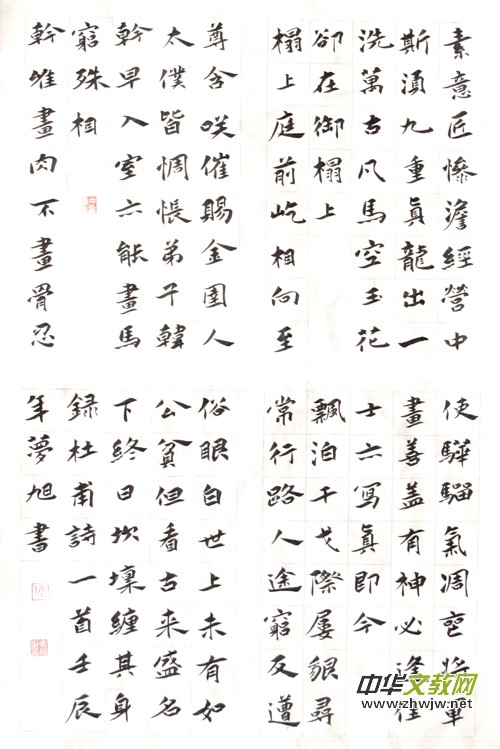 素意匠慘澹經營中
斯須九重眞龍出一
洗萬古凡馬空玉花
卻在御榻上
榻上庭前屹相向至
尊含咲催賜金圉人
太僕皆惆悵弟子韓
幹早入室亦能畫馬
窮殊相
幹唯畫肉不畫骨忍
使驊騮氣凋喪將軍
畫善蓋有神必逢佳
士亦寫眞即今
飄泊干戈際屢貌尋
常行路人途窮反遭
俗眼白世上未有如
公貧但看古來盛名
下終日坎壈纏其身
錄杜甫詩一首壬辰
年夢旭書
中华文教网
www.zhwjw.net